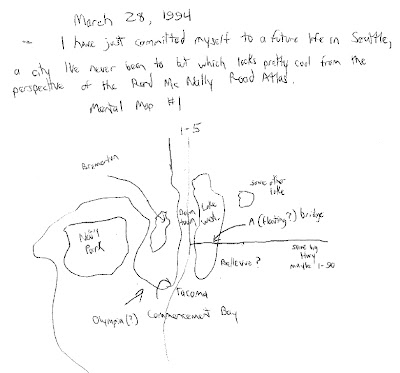 March 28, 1994
– I have just committed myself to a future life in Seattle,
a city I've never been to but which looks pretty cool from the
perspective of the Rand McNally Road Atlas.
Mental Map #1
I-5
Bremerton
some other
lake
Down
town
Lake
Wash.
A (floating?) Bridge
Nat'l
Park
some big
Hwy
maybe I-90
Bellevue?
Tacoma
Olympia(?)
Commencement Bay